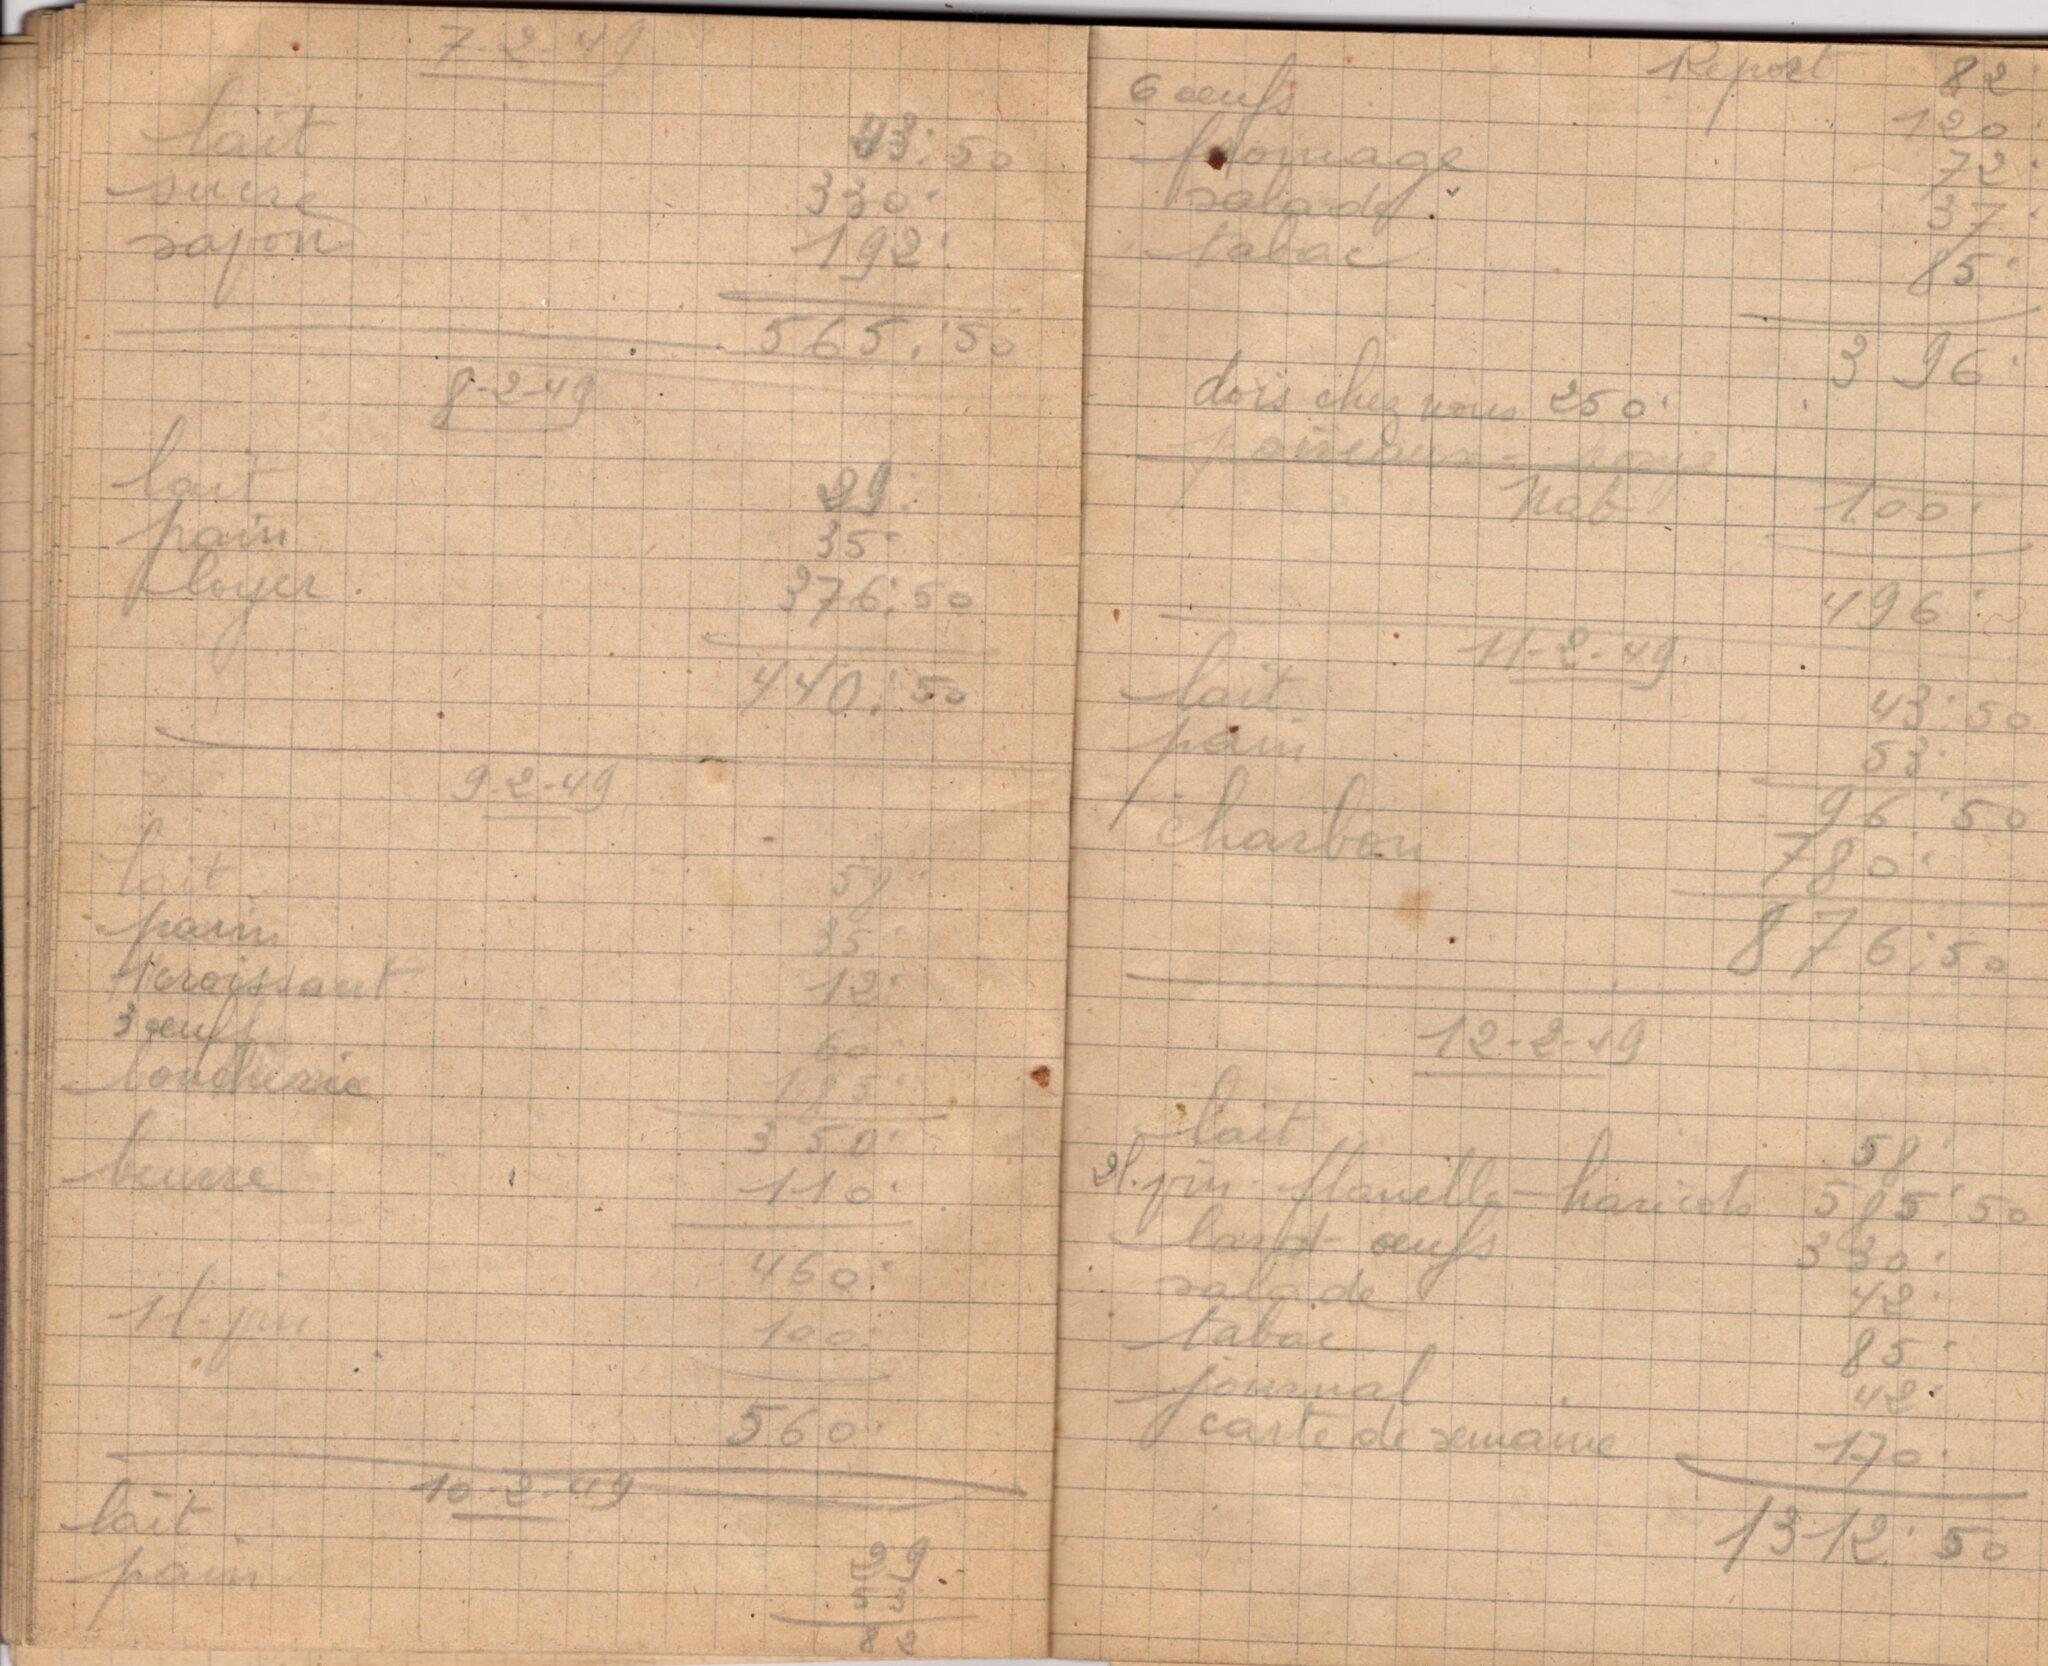 7-2-49
lait 43:50
sucre 330:
sapon 192:
565:50
8-2-49
lait 29:
pain 35:
loyer 376:50
440:50
9-2-49
lait 58:
pain 35:
1 croissant 12:
3 œufs 60:
boucherie 185:
350:
beurre 110:
460:
1l. pin 100:
560:
10-2-49
lait 29
pain 53
82
Report 82:
6 œufs 120:
fromage 72:
salade 37:
tabac 85:
396:
dois chez nous 250:
100:
496:
11-2-49
lait 43:50
pain 53:
96:50
charbon 780:
876:50
12-2-49
lait 58:
2l. pin flanelle - haricots 585:50
lard œufs 330:
salade 42:
tabac 85:
journal 42:
carte de semaine 170:
1312:50